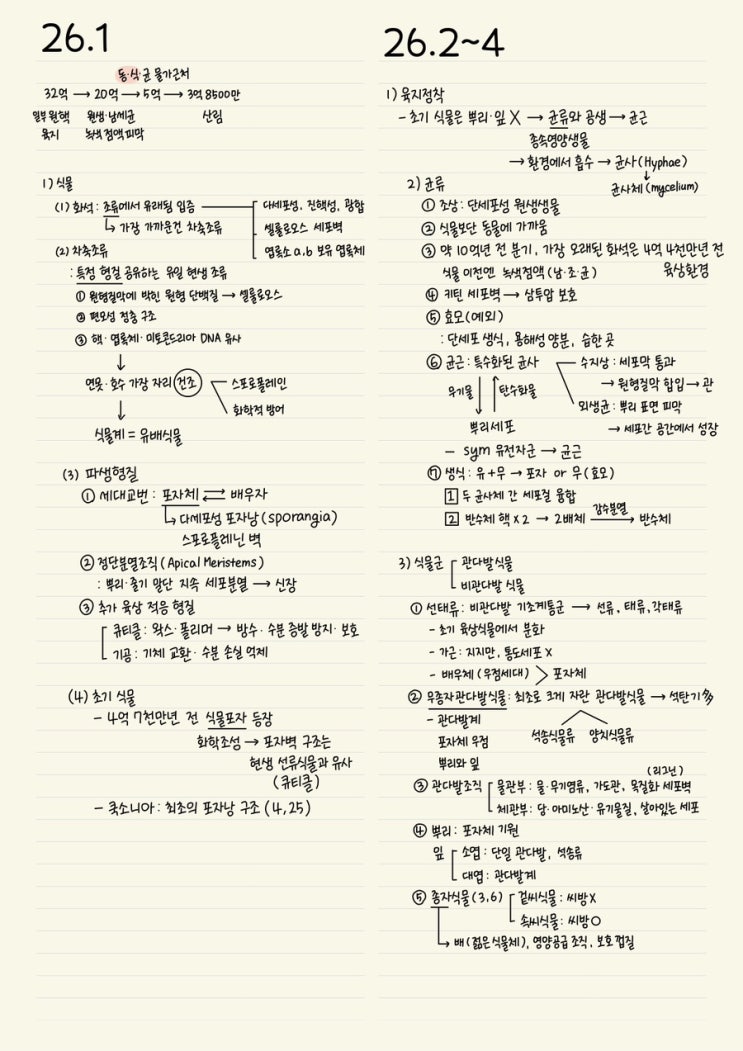 26.1
동·식·균 물가근처
32억 → 20억 → 5억 → 3억 8500만
일부 원핵 원생·남세균 산림
육지 녹색 점액 피막
1) 식물
(1) 화석 : 조류에서 유래됨 입증 다세포성, 진핵성, 광합
↳ 가장 가까운건 차축조류 셀룰로오스 세포벽
(2) 차축조류 엽록소 a.b 보유 엽록체
: 특정 형질 공유하는 유일 현생 조류
① 원형질막에 박힌 원형 단백질 → 셀룰로오스
② 편모성 정충 구조
③ 핵·엽록체·미토콘드리아 DNA 유사
↓
연못·호수 가장 자리 건조 스포로폴레인
↓ 화학적 방어
식물계 = 유배식물
(3) 파생형질
① 세대교번 : 포자체 ⇄ 배우자
↳ 다세포성 포자낭(sporangia)
스포로폴레닌 벽
② 정단분열조직(Apical Meristems)
: 뿌리·줄기 말단 지속 세포분열 → 신장
③ 추가 육상 적응 형질
큐티클 : 왁스·폴리머 → 방수·수분 증발 방지·보호
기공 : 기체 교환·수분 손실 억제
(4) 초기 식물
- 4억 7천만년 전 식물포자 등장
화학조성 → 포자벽 구조는
현생 선류식물과 유사
(큐티클)
- 쿡소니아 : 최초의 포자낭 구조 (4,25)
26.2~4
1) 육지정착
- 초기 식물은 뿌리·잎 X → 균류와 공생 → 균근
종속영양생물
→ 환경에서 흡수 → 균사(Hyphae)
↓
2) 균류 균사체(mycelium)
① 조상 : 단세포성 원생생물
② 식물보단 동물에 가까움
③ 약 10억년 전 분기, 가장 오래된 화석은 4억 4천만년 전
식물 이전엔 녹색점액(남·조·균) 육상환경
④ 키틴 세포벽 → 삼투압 보호
⑤ 효모(예외)
: 단세포 생식, 용해성 양분, 습한 곳
⑥ 균근 : 특수화된 균사 수지상 : 세포막 통과
→ 원형질막 함입 → 관
무기물 ↓ ↑ 탄수화물 외생균 : 뿌리 표면 피막
뿌리세포 → 세포간 공간에서 성장
- sym 유전자군 → 균근
⑦ 생식 : 유+무 → 포자 or 무(효모)
1 두 균사체 간 세포질 융합
2 반수체 핵 x2 → 2배체 감수분열→ 반수체
3) 식물군 관다발식물
비관다발 식물
① 선태류 : 비관다발 기초계통군 → 선류, 태류, 각태류
- 초기 육상식물에서 분화
- 가근 : 지지만, 통도세포 X
- 배우체 (우점세대) > 포자체
② 무종자관다발식물 : 최초로 크게 자란 관다발식물 → 석탄기 多
- 관다발계 석송식물류 양치식물류
포자체 우점
뿌리와 잎
(리그닌)
③ 관다발조직 물관부 : 물·무기염류, 가도관, 목질화 세포벽
체관부 : 당·아미노산·유기물질, 살아있는 세포
④ 뿌리 : 포자체 기원
잎 소엽 : 단일 관다발, 석송류
대엽 : 관다발계
⑤ 종자식물(3,6) 겉씨식물 : 씨방X
속씨식물 : 씨방O
↳ 배(젊은식물체), 영양공급 조직, 보호껍질